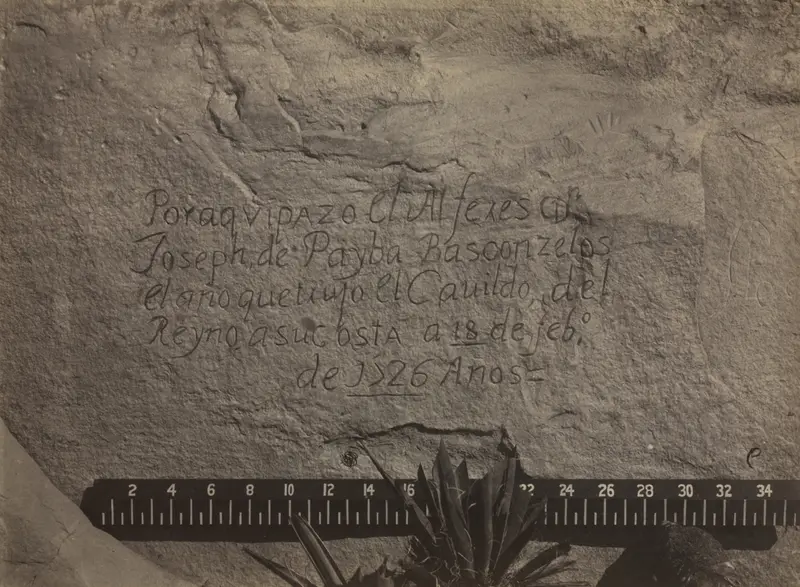 Por aqvi pazo el Alferes Dn
Joseph de Payba Basconzelos
el año que trujo el Cauildo del
Reyno a su costa a 18 de feb.º
de 1726 Años
e
2 4 6 8 10 12 14 16 22 24 26 28 30 32 34